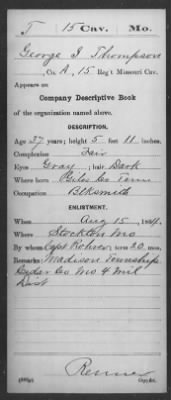 T 15 Cav. Mo.
George I Thompson
, Co. A, 15 Reg't Missouri Cav.
Appears on
Company Descriptive Book
of the organization named above.
DESCRIPTION.
Age 37 years; height 5 feet 11 inches.
Complexion Fair
Eyes Gray; hair Dark
Where born Giles Co Tenn
Occupation Blksmith
ENLISTMENT.
When Aug 15, 1864.
Where Stockton Mo
By whom Capt Rohrer; term 20 mo.
Remarks: Madison Township
Cedar Co Mo 4 Mil
Dist
Renner
Copyist.